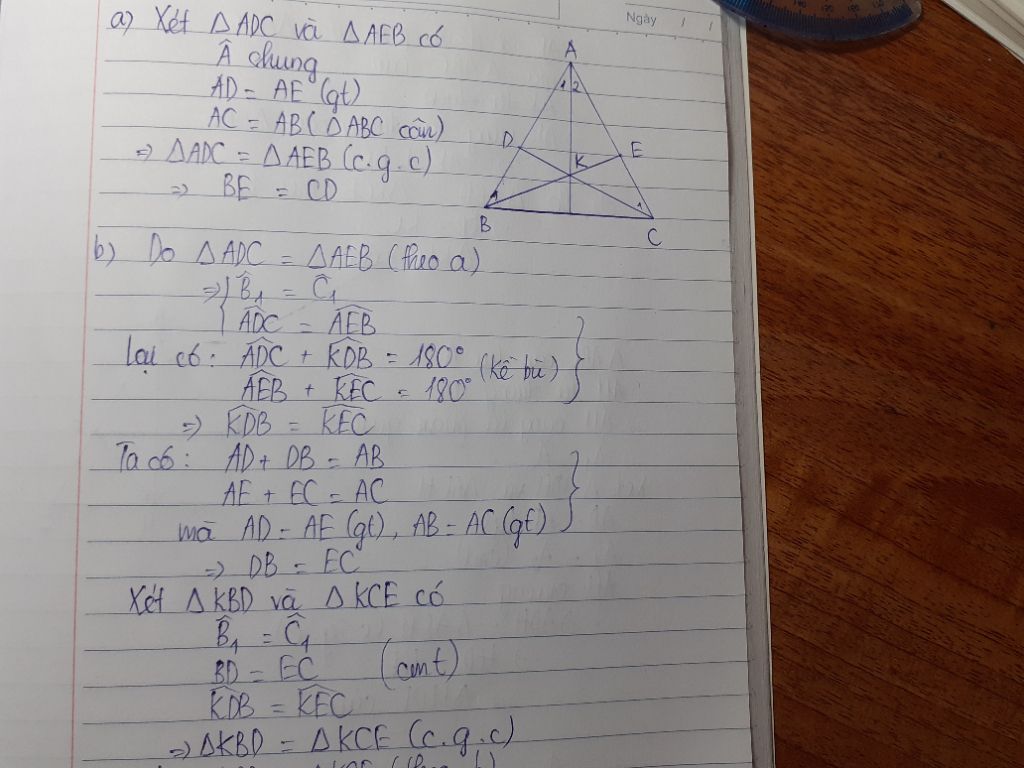 Ngày / /
a) Xét △ADC và △AEB có
Â chung
AD = AE (gt)
AC = AB (△ABC cân)
⇒ △ADC = △AEB (c.g.c)
⇒ BE = CD
A
1 2
D
E
K
1
1
B
C
b) Do △ADC = △AEB (theo a)
⇒ B̂₁ = Ĉ₁
ADC = AEB
Lại có: ADC + KDB = 180° (kề bù)
AEB + KEC = 180°
⇒ KDB = KEC
Ta có: AD + DB = AB
AE + EC = AC
mà AD = AE (gt), AB = AC (gt)
⇒ DB = EC
Xét △KBD và △KCE có
B̂₁ = Ĉ₁
BD = EC (cmt)
KDB = KEC
⇒ △KBD = △KCE (c.g.c)